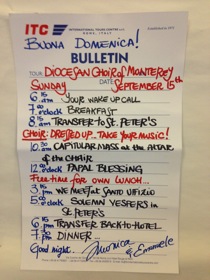 ITC
INTERNATIONAL TOURS CENTRE S.r.l.
ROME, ITALY
BUONA DOMENICA!
BULLETIN
TOUR DIOCESAN CHOIR OF MONTEREY
SUNDAY DATE SEPTEMBER 15th
6.15 am YOUR WAKE UP CALL
7. o'clock BREAKFAST
8.15 am TRANSFER to St. PETER'S
CHOIR: DRESSED UP - TAKE YOUR MUSIC!
10.30 am CAPITULAR MASS at the ALTAR
of the CHAIR
12.00 o'clock PAPAL BLESSING
FREE time FOR OWN LUNCH...
3.15 pm WE MEET at SANTO UFIZIO
5.00 o'clock SOLEMN VESPERS in
St. PETER'S
6.15 pm TRANSFER BACK-to-HOTEL
7. pm DINNER...
Good night... Monica & Emmele